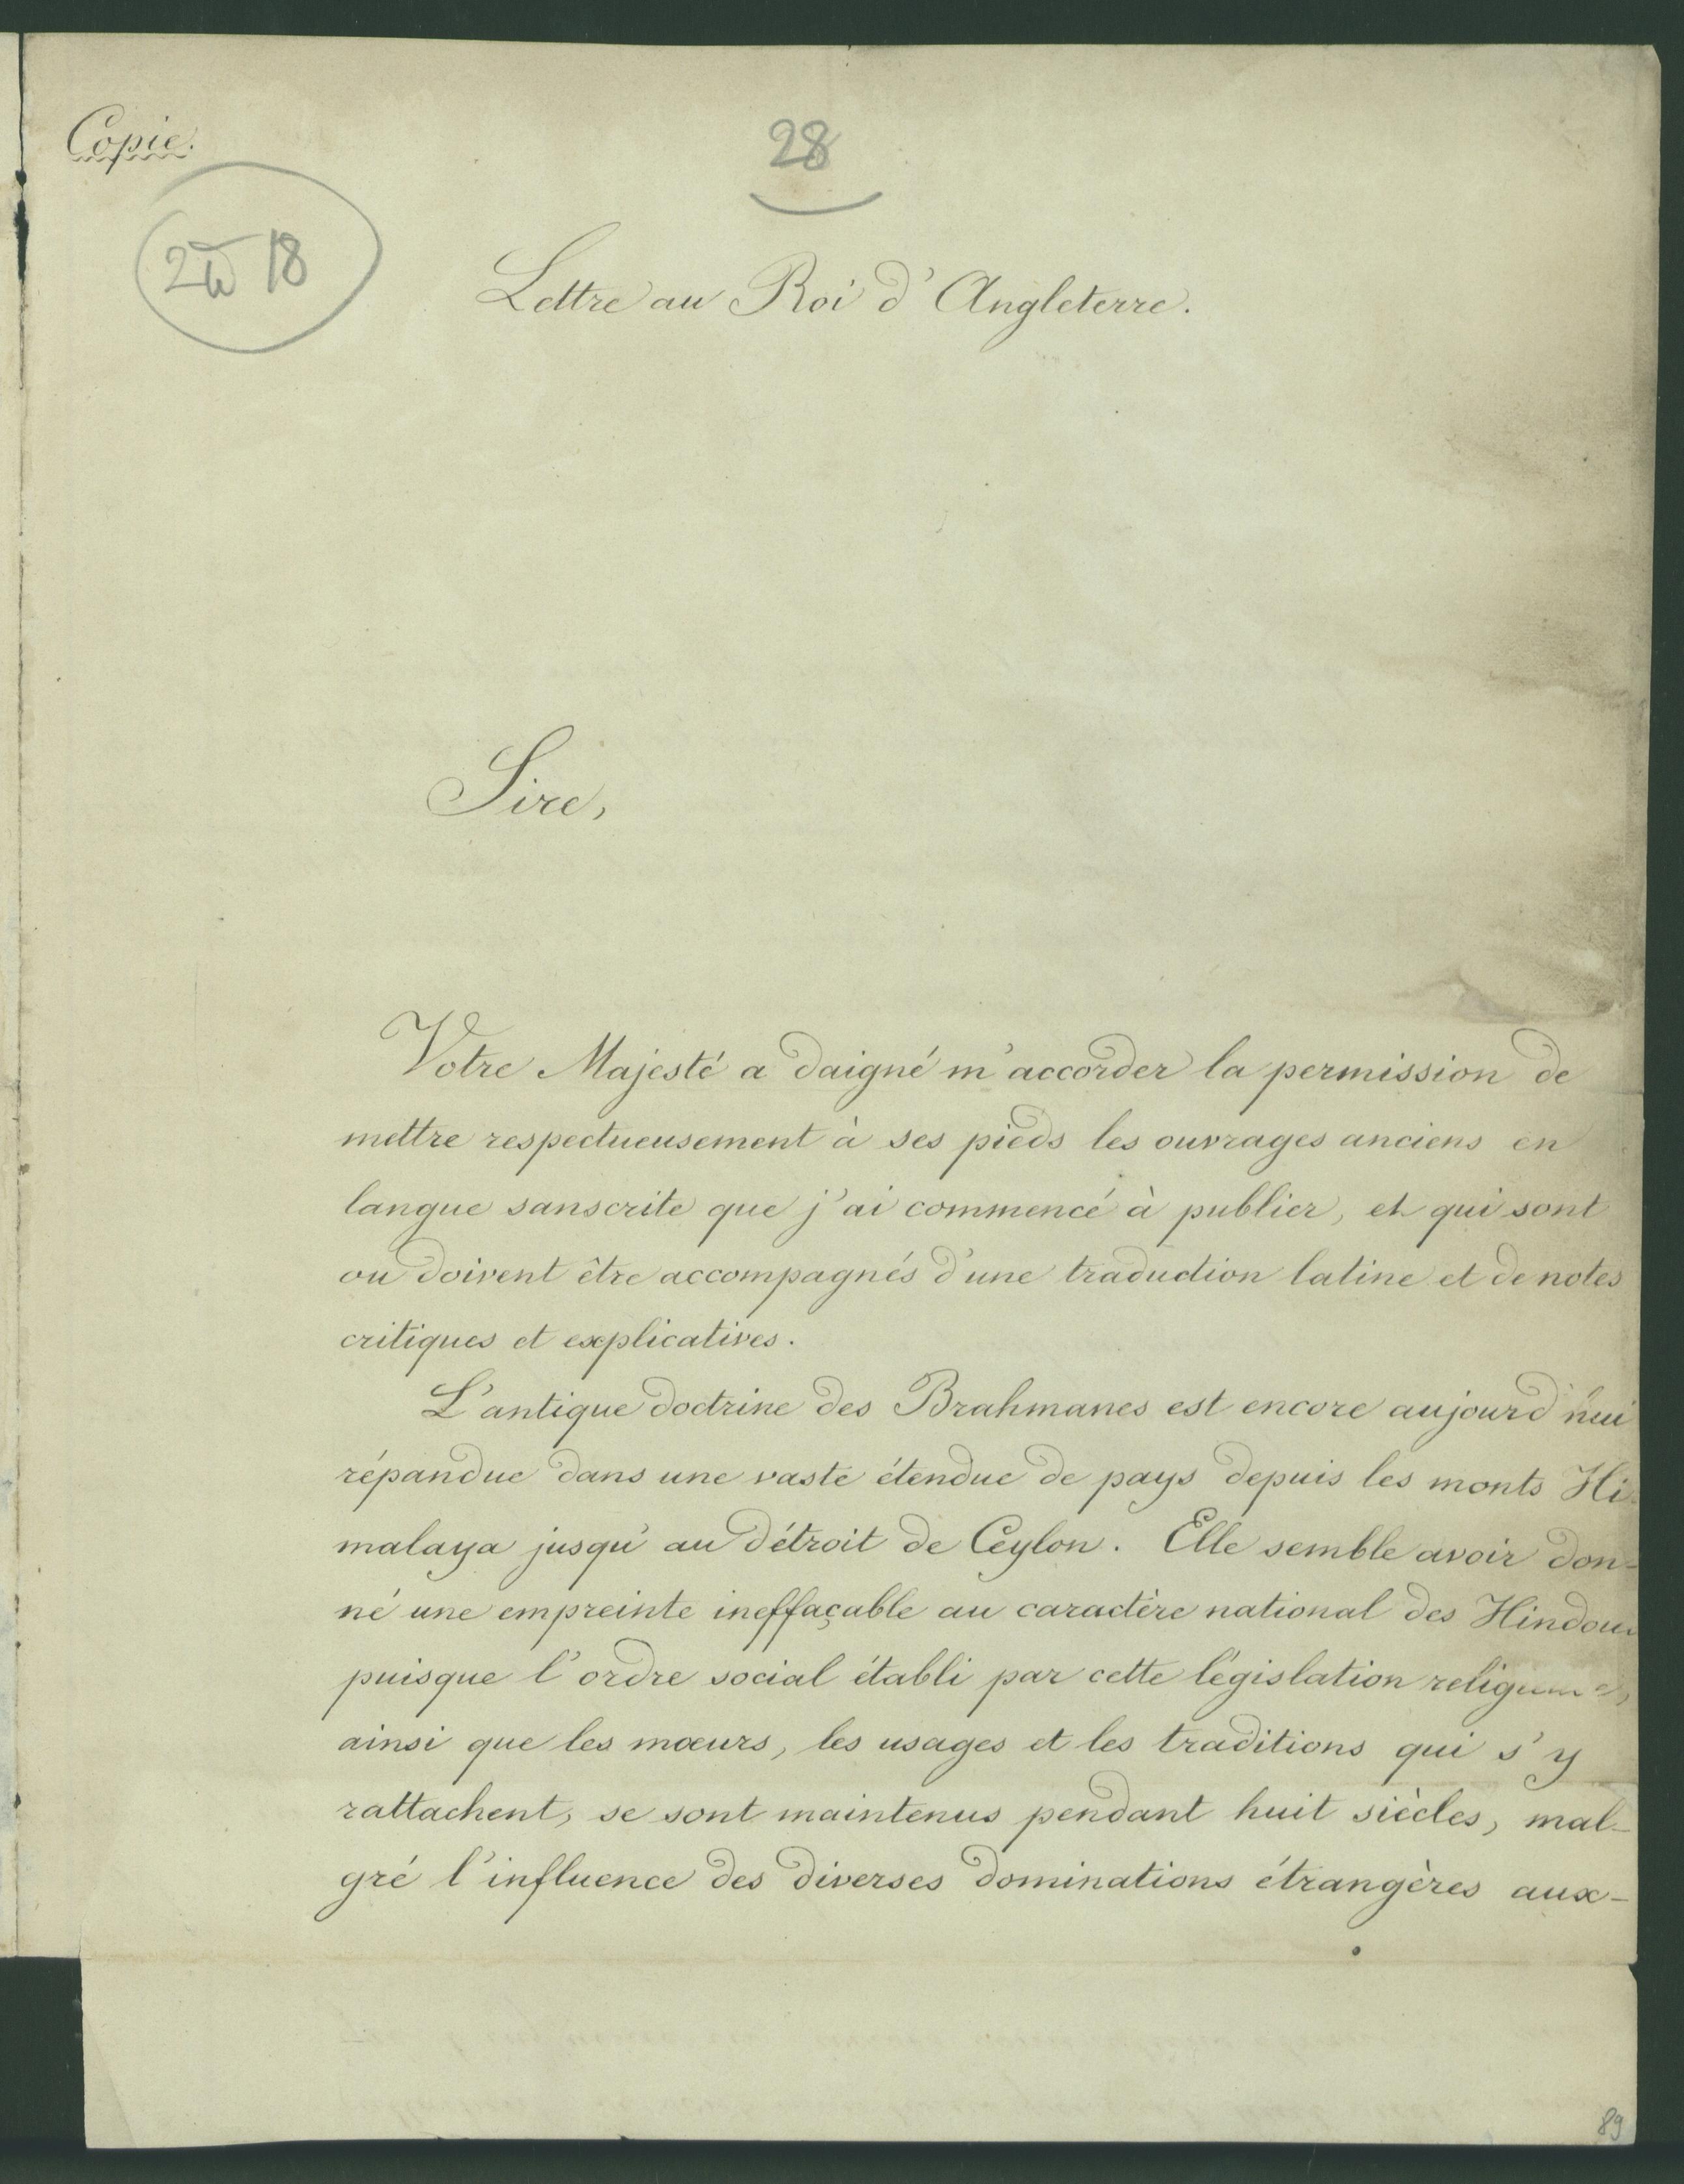 Copie.
28
18
Lettre au Roi d'Angleterre.
Sire,
Votre Majesté a daigné m'accorder la permission de
mettre respectueusement à ses pieds les ouvrages anciens en
langue sanscrite que j'ai commencé à publier, et qui sont
ou doivent être accompagnés d'une traduction latine et de notes
critiques et explicatives.
L'antique doctrine des Brahmanes est encore aujourd'hui
répandue dans une vaste étendue de pays depuis les monts Hi-
malaya jusqu'au détroit de Ceylon. Elle semble avoir don-
né une empreinte ineffaçable au caractère national des Hindous
puisque l'ordre social établi par cette législation religieuse,
ainsi que les mœurs, les usages et les traditions qui s'y
rattachent, se sont maintenus pendant huit siècles, mal-
gré l'influence des diverses dominations étrangères aux-
89